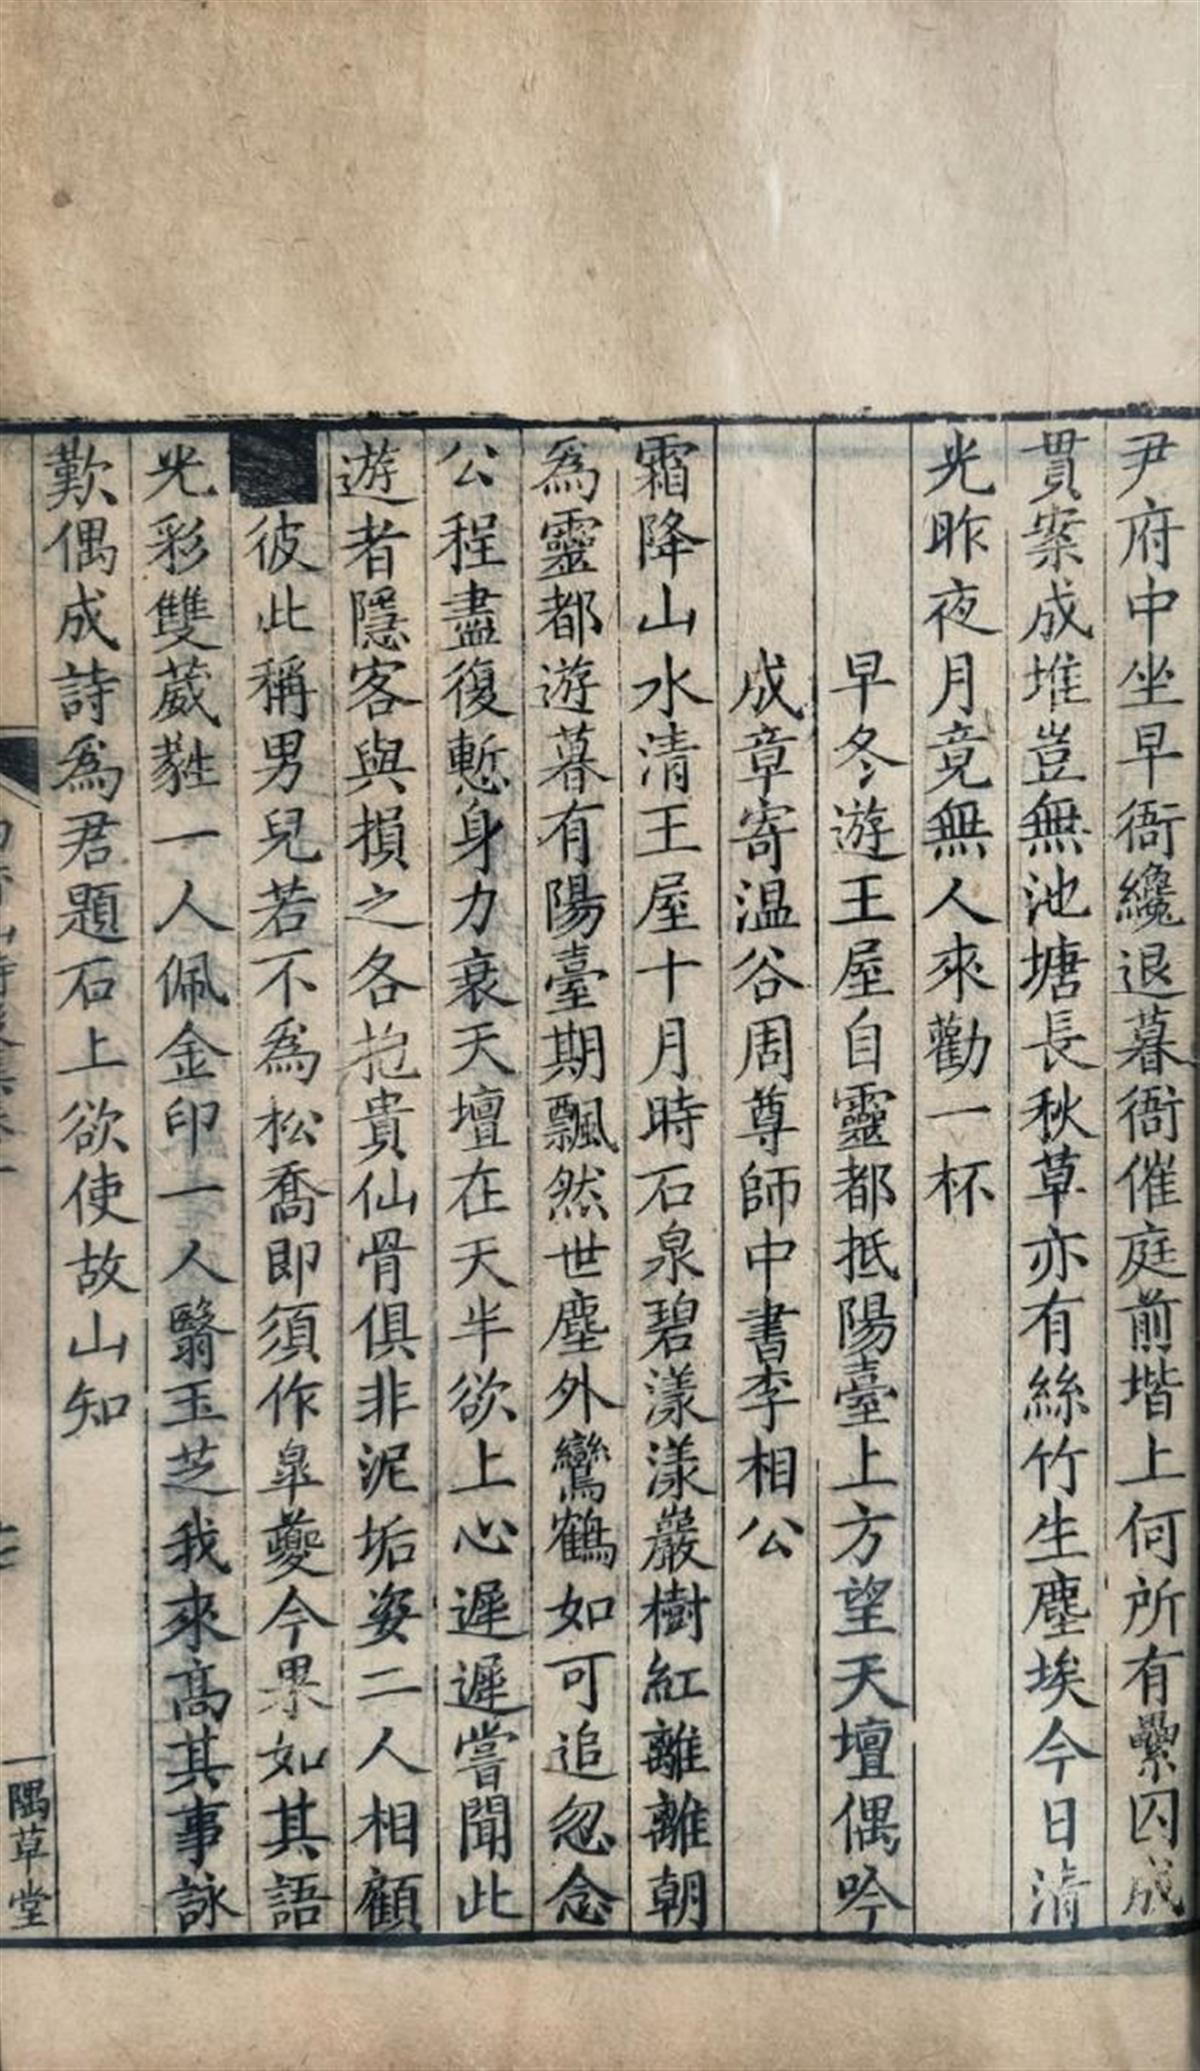 尹府中坐早衙纔退暮衙催庭前堦上何所有纍囚成
貫案成堆豈無池塘長秋草亦有絲竹生塵埃今日清
光昨夜月竟無人來勸一杯
早冬遊王屋自靈都抵陽臺上方望天壇偶吟
成章寄温谷周尊師中書李相公
霜降山水清王屋十月時石泉碧漾漾巖樹紅離離朝
為靈都遊暮有陽臺期飄然世塵外鸞鶴如可追忽念
公程盡復慙身力衰天壇在天半欲上心遲遲嘗聞此
遊者隱客與損之各抱貴仙骨俱非泥垢姿二人相顧
彼此稱男兒若不為松喬即須作臯夔今果如其語
光彩雙葳蕤一人佩金印一人翳玉芝我來高其事詠
歎偶成詩為君題石上欲使故山知
一隅草堂